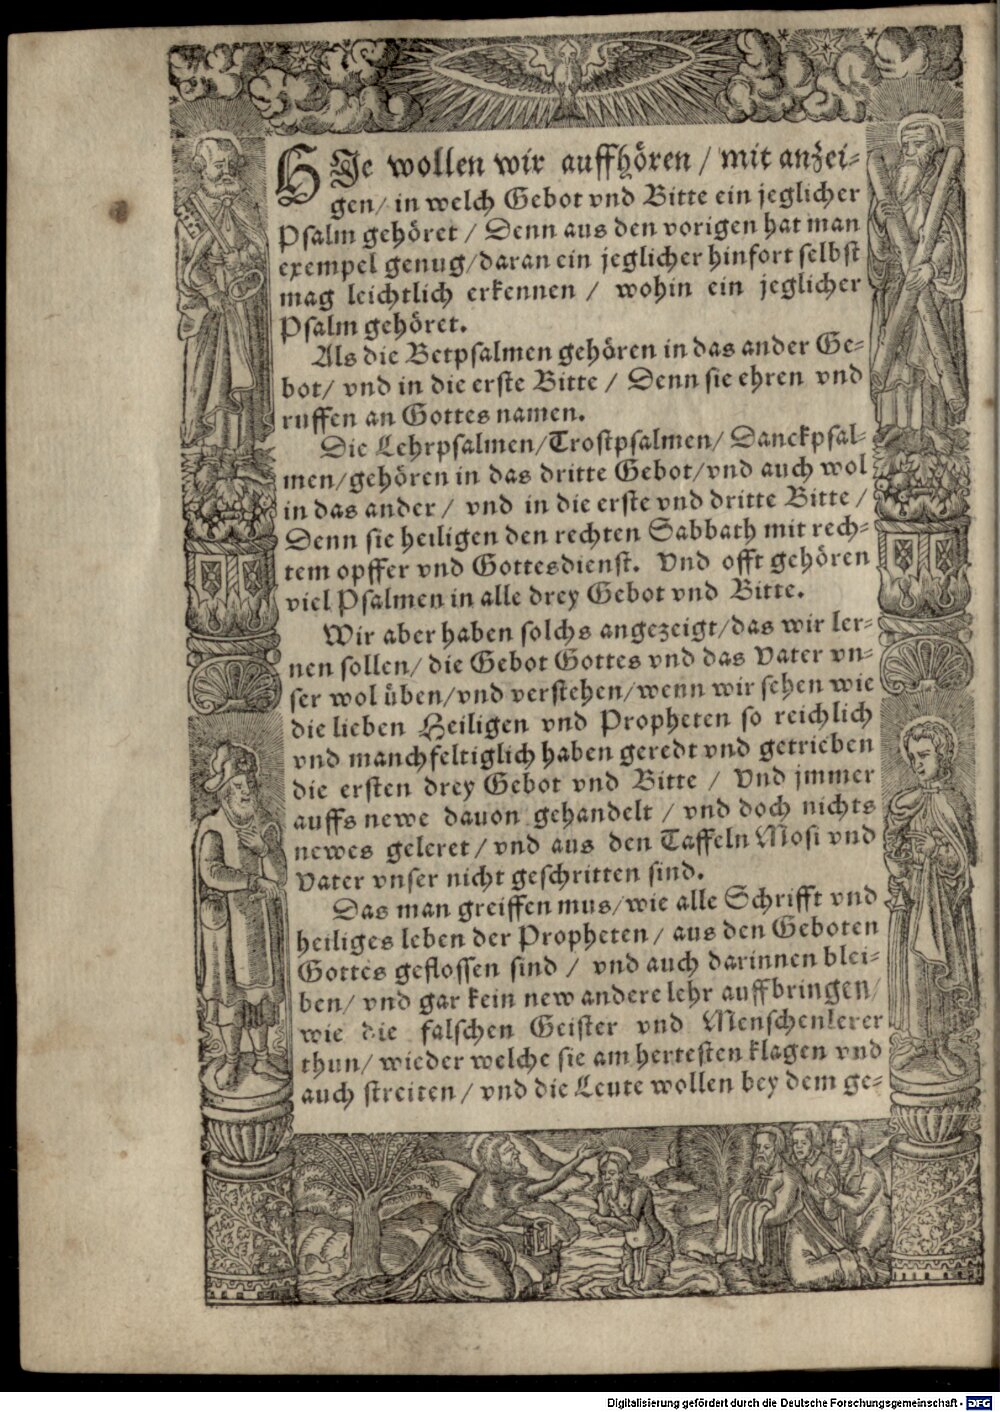 HJe wollen wir auffhören / mit anzei⸗
gen / in welch Gebot vnd Bitte ein jeglicher
Psalm gehöret / Denn aus den vorigen hat man
exempel genug / daran ein jeglicher hinfort selbst
mag leichtlich erkennen / wohin ein jeglicher
Psalm gehöret.
Als die Betpsalmen gehören in das ander Ge⸗
bot / vnd in die erste Bitte / Denn sie ehren vnd
ruffen an Gottes namen.
Die Lehrpsalmen / Trostpsalmen / Danckpsal⸗
men / gehören in das dritte Gebot / vnd auch wol
in das ander / vnd in die erste vnd dritte Bitte /
Denn sie heiligen den rechten Sabbath mit rech⸗
tem opffer vnd Gottesdienst. Vnd offt gehören
viel Psalmen in alle drey Gebot vnd Bitte.
Wir aber haben solchs angezeigt / das wir ler⸗
nen sollen / die Gebot Gottes vnd das Vater vn⸗
ser wol üben / vnd verstehen / wenn wir sehen wie
die lieben Heiligen vnd Propheten so reichlich
vnd manchfeltiglich haben geredt vnd getrieben
die ersten drey Gebot vnd Bitte / Vnd jmmer
auffs newe dauon gehandelt / vnd doch nichts
newes geleret / vnd aus den Taffeln Mosi vnd
Vater vnser nicht geschritten sind.
Das man greiffen mus / wie alle Schrifft vnd
heiliges leben der Propheten / aus den Geboten
Gottes geflossen sind / vnd auch darinnen blei⸗
ben / vnd gar kein new andere lehr auffbringen /
wie die falschen Geister vnd Menschenlerer
thun / wieder welche sie am hertesten klagen vnd
auch streiten / vnd die Leute wollen bey dem ge⸗
Digitalisierung gefördert durch die Deutsche Forschungsgemeinschaft - DFG